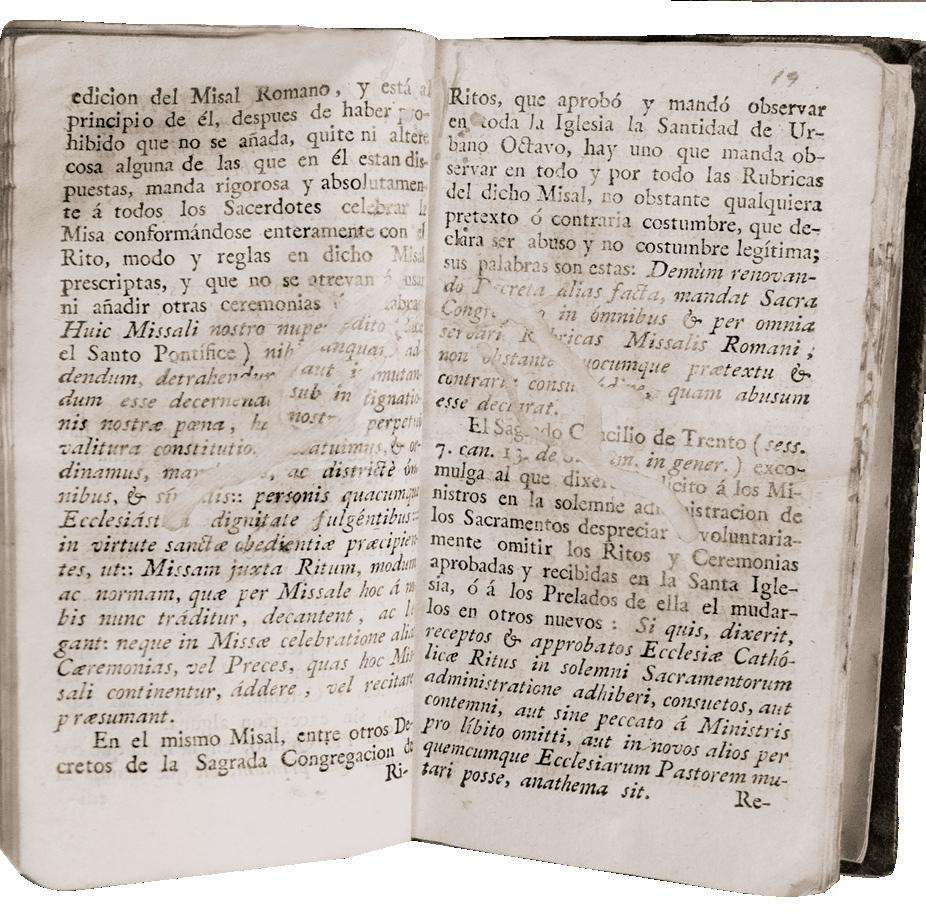 edicion del Misal Romano, y está al
principio de él, despues de haber
hibido que no se añada, quite ni altere
cosa alguna de las que en él estan dis-
puestas, manda rigorosa y absolutamen-
te á todos los Sacerdotes celebrar la
Misa conformándose enteramente con el
Rito, modo y reglas en dicho Misal
prescriptas, y que no se atrevan á usar
ni añadir otras ceremonias
Huic Missali nostro
el Santo Pontífice) ad-
dendum, aut
dum esse sub indignatio-
nis nostræ pœna, perpetuò
valitura &
dinamus, ac districtè om-
nibus, & personis quacumque
dignitate fulgéntibus::
in virtute sanctæ obedientiæ præcipien-
tes, ut:: Missam juxta Ritum, modum
ac normam, quæ per Missale hoc á no-
bis nunc tráditur, decantent, ac le-
gant: neque in Missæ celebratione alias
Cæremonias, vel Preces, quas hoc Mis-
sali continentur, áddere, vel recitare
præsumant.
En el mismo Misal, entre otros De-
cretos de la Sagrada Congregacion de
Ri-
19
Ritos, que aprobó y mandó observar
en toda la Iglesia la Santidad de Ur-
bano Octavo, hay uno que manda ob-
servar en todo y por todo las Rubricas
del dicho Misal, no obstante qualquiera
pretexto ó contraria costumbre, que de-
clara ser abuso y no costumbre legítima;
sus palabras son estas: Demùm renovan-
do Decreta alias facta, mandat Sacra
in ómnibus & per omnia
servari Rubricas Missalis Romani;
non obstante quocumque prætextu &
contraria quam abusum
esse declarat.
El Sagrado Concilio de Trento (sess.
7. can. 13. de in gener.) exco-
mulga al que dixere lícito á los Mi-
nistros en la solemne administracion de
los Sacramentos despreciar voluntaria-
mente omitir los Ritos y Ceremonias
aprobadas y recibidas en la Santa Igle-
sia, ó á los Prelados de ella el mudar-
los en otros nuevos: Si quis, dixerit,
receptos & approbatos Ecclesiæ Cathó-
licæ Ritus in solemni Sacramentorum
administratione adhiberi, consuetos, aut
contemni, aut sine peccato á Ministris
pro líbito omitti, aut in novos alios per
quemcumque Ecclesiarum Pastorem mu-
tari posse, anathema sit.
Re-